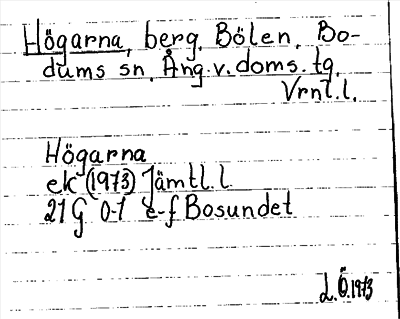 Högarna, berg. Bölen. Bo-
dums sn. Ång.v. doms. tg.
Vrnl.l.
Högarna
ek (1973) Jämtl.l
21 G 0-1 e-f Bosundet
L.Ö.1973